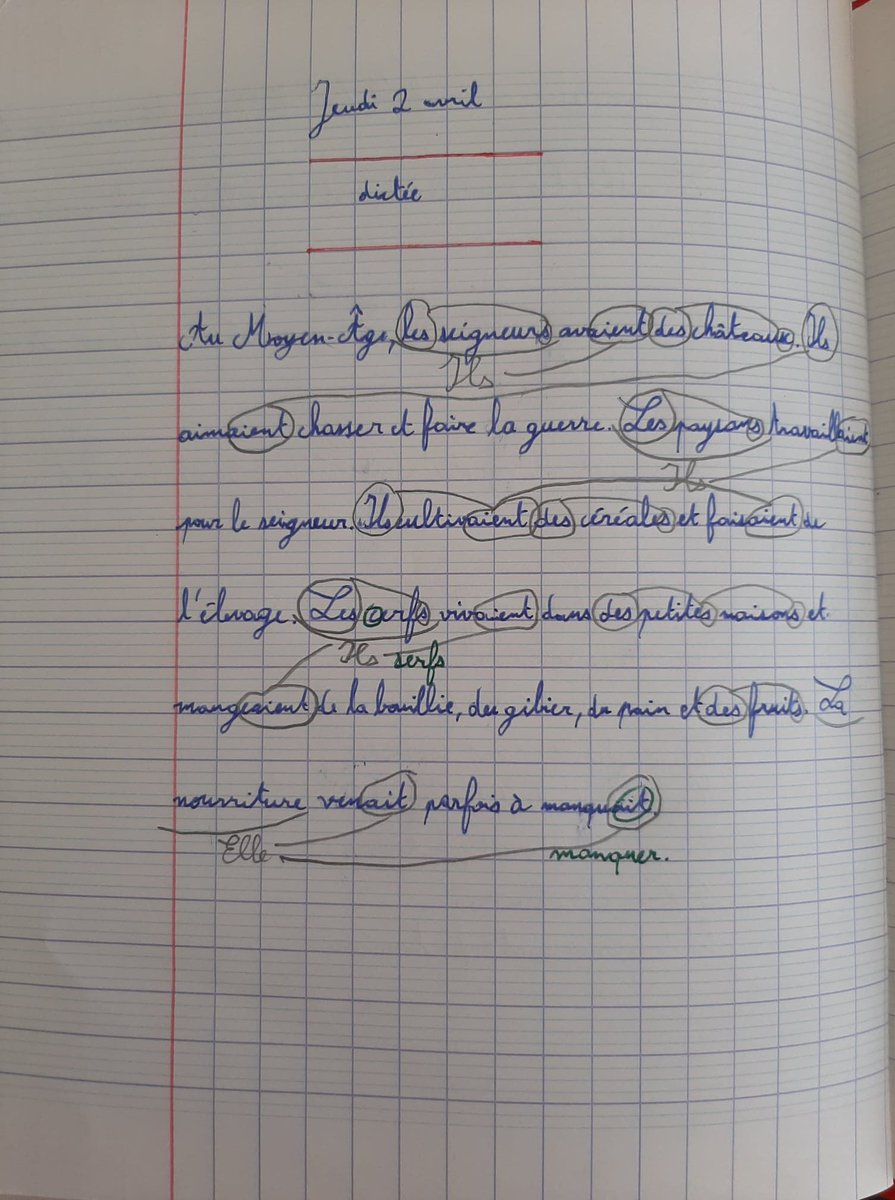 Jeudi 2 avril
dictée
Au Moyen-Âge, les seigneurs avaient des châteaux. Ils
Ils
aimaient chasser et faire la guerre. Les paysans travaillaient
Ils
pour le seigneur. Ils cultivaient des céréales et faisaient de
l'élevage. Les cerfs vivaient dans des petites maisons et
Ils serfs
mangeaient de la bouillie, du gibier, du pain et des fruits. La
nourriture venait parfois à manquait.
Elle manquer.